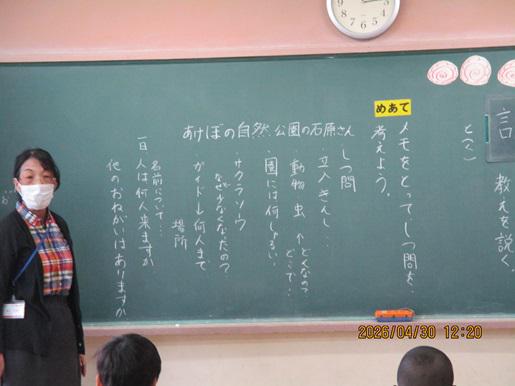 言
教えを説く。
と(〜)
めあて
メモをとって、しつ問を
考えよう。
あけぼの自然公園の石原さん
しつ問
・立入きんし
・動物 虫 ← どんなの?
どこで…
・園には何しゅるい。
・サクラソウ
なぜ少なくなったの?
ガイドレ 何人まで
場所
名前について…
一日 人は何人来ますか
他のおねがいはありますか
2026/04/30 12:20